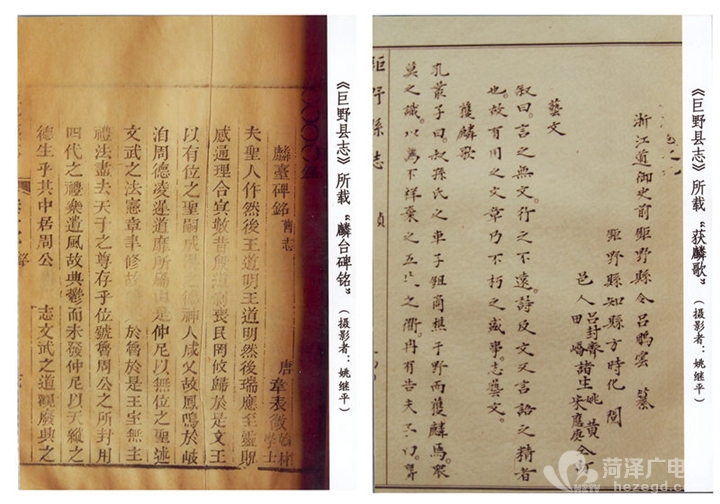 《巨野县志》所载“麟台碑铭”（摄影者：姚继平）
麟臺碑銘 舊志
唐 韋表微 翰林學士
夫聖人作然後王道明王道明然後瑞應至靈貺
感通理合冥數昔 喪民罔攸歸於是文王
以有位之聖嗣成湯之德神人咸乂故鳳鳴於岐
洎周德凌遲道靡所 是仲尼以無位之聖述
文武之法憲章聿修故 於魯於是王室無主
禮法盡去天子之尊存乎位號魯周公之所封用
四代之禮樂遺風故典鬱而未發仲尼以天縱之
德生乎其中居周公 志文武之道覩廢典之
《巨野县志》所载“获麟歌”（摄影者：姚继平）
浙江道御史前鉅野縣令呂鵬雲 纂
鉅野縣知縣方時化 閱
邑人 呂封齊 姚 黃
田 諸生 仝
藝文
叙曰。言之無文。行之不遠。詩反文又言語之精者
也。故有用之文章。乃不朽之盛事。志藝文。
獲麟歌
孔叢子曰。叔孫氏之車子鉏商樵于野而獲麟焉。衆
莫之識。以為不祥。棄之五 之衢。冉有告夫子曰
鉅野縣志
菏泽广电
www.hezegd.com